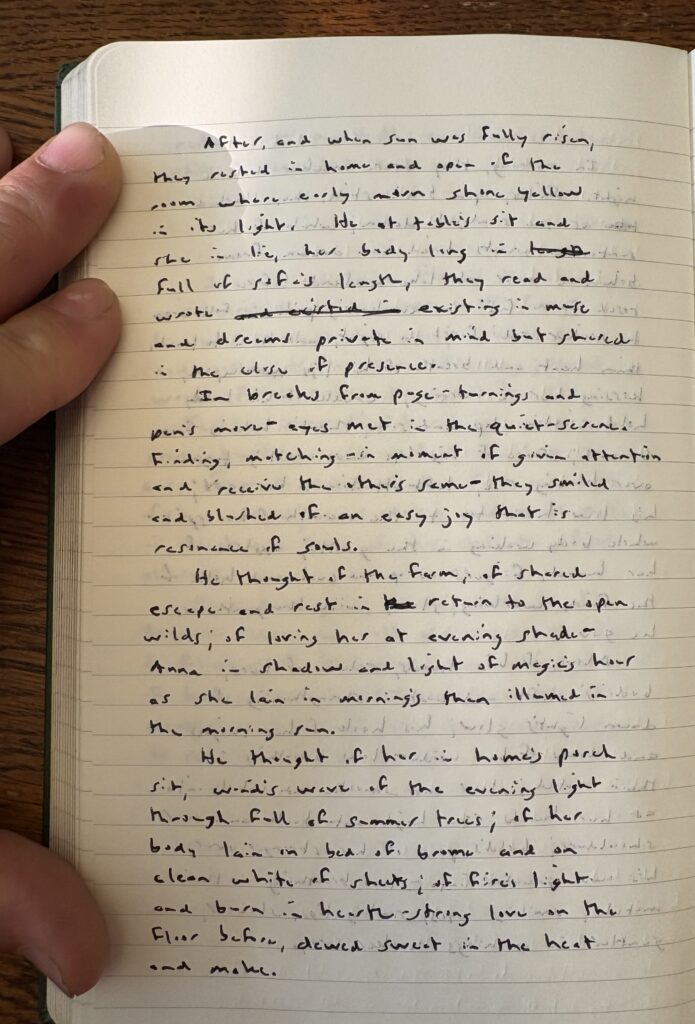 After, and when sun was fully risen,
they rested in home and open of the
room where early morn shone yellow
in its light. He at table's sit and
she in lie, her body long in
full of sofa's length, they read and
wrote and existed in existing in muse
and dreams private in mind but shared
in the close of presence.
In breaks from page-turnings and
pen's move- eyes met in the quiet-serene.
Finding, matching -in moment of given attention
and receive the other's same- they smiled
and blushed of an easy joy that is
resonance of souls.
He thought of the farm, of shared
escape and rest in the return to the open
wilds; of loving her at evening shade-
Anna in shadow and light of magic's hour
as she lain in morning's then illumed in
the morning sun.
He thought of her in home's porch
sit, wind's wave of the evening light
through full of summer trees; of her
body lain on bed of brome and on
clean white of sheets; of fire's light
and burn in hearth -strong love on the
floor before, dewed sweat in the heat
and make.